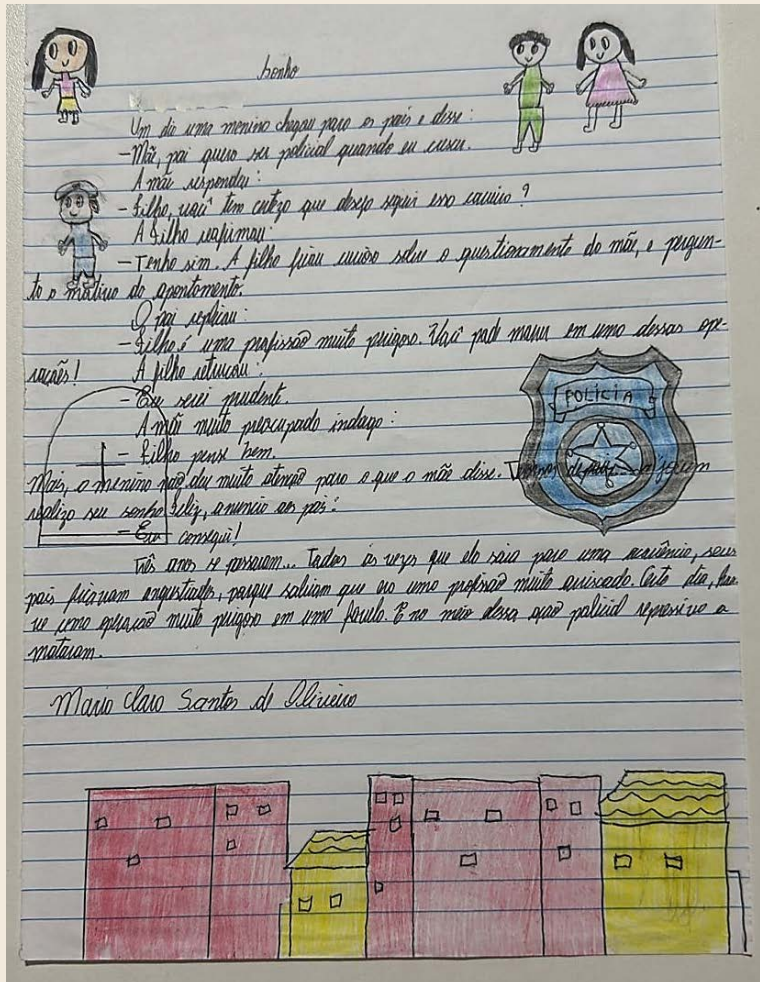 Sonho
Um dia uma menino chegou para os pais e disse:
-Mãe, pai quero ser policial quando eu crescer.
A mãe respondeu:
- Filho, você tem certeza que deseja seguir essa carreira?
A Filho reafirmou:
- Tenho sim. A filho ficou curioso sobre o questionamento da mãe, e pergun-
to o motivo do apontamento.
O pai replicou:
- Filho é uma profissão muito perigosa. Você pode morrer em uma dessas ope-
rações! A filho retrucou:
- Eu serei prudente.
A mãe muito preocupada indago:
- Filho pense bem.
Mais, o menino não deu muita atenção para o que a mãe disse. depois
realizo seu sonho feliz, anuncio aos pais:
- Eu consegui!
Três anos se passaram... Todas às vezes que ele saia para uma seus
pais ficavam angustiados, porque sabiam que era uma profissão muito arriscada. Certo dia, hou-
ve uma operação muito perigosa em uma favela. E no meio dessa ação policial repressiva a
mataram.
Maria Clara Santos de Oliveira
POLÍCIA